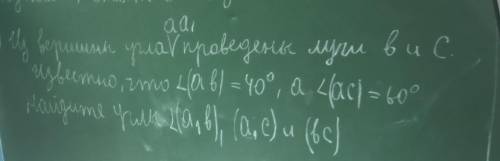 aa₁
Из вершины угла проведены лучи в и с.
известно, что ∠(ав) = 40°, а ∠(ас) = 60°
Найдите углы ∠(а₁в), (а₁с) и (вс)